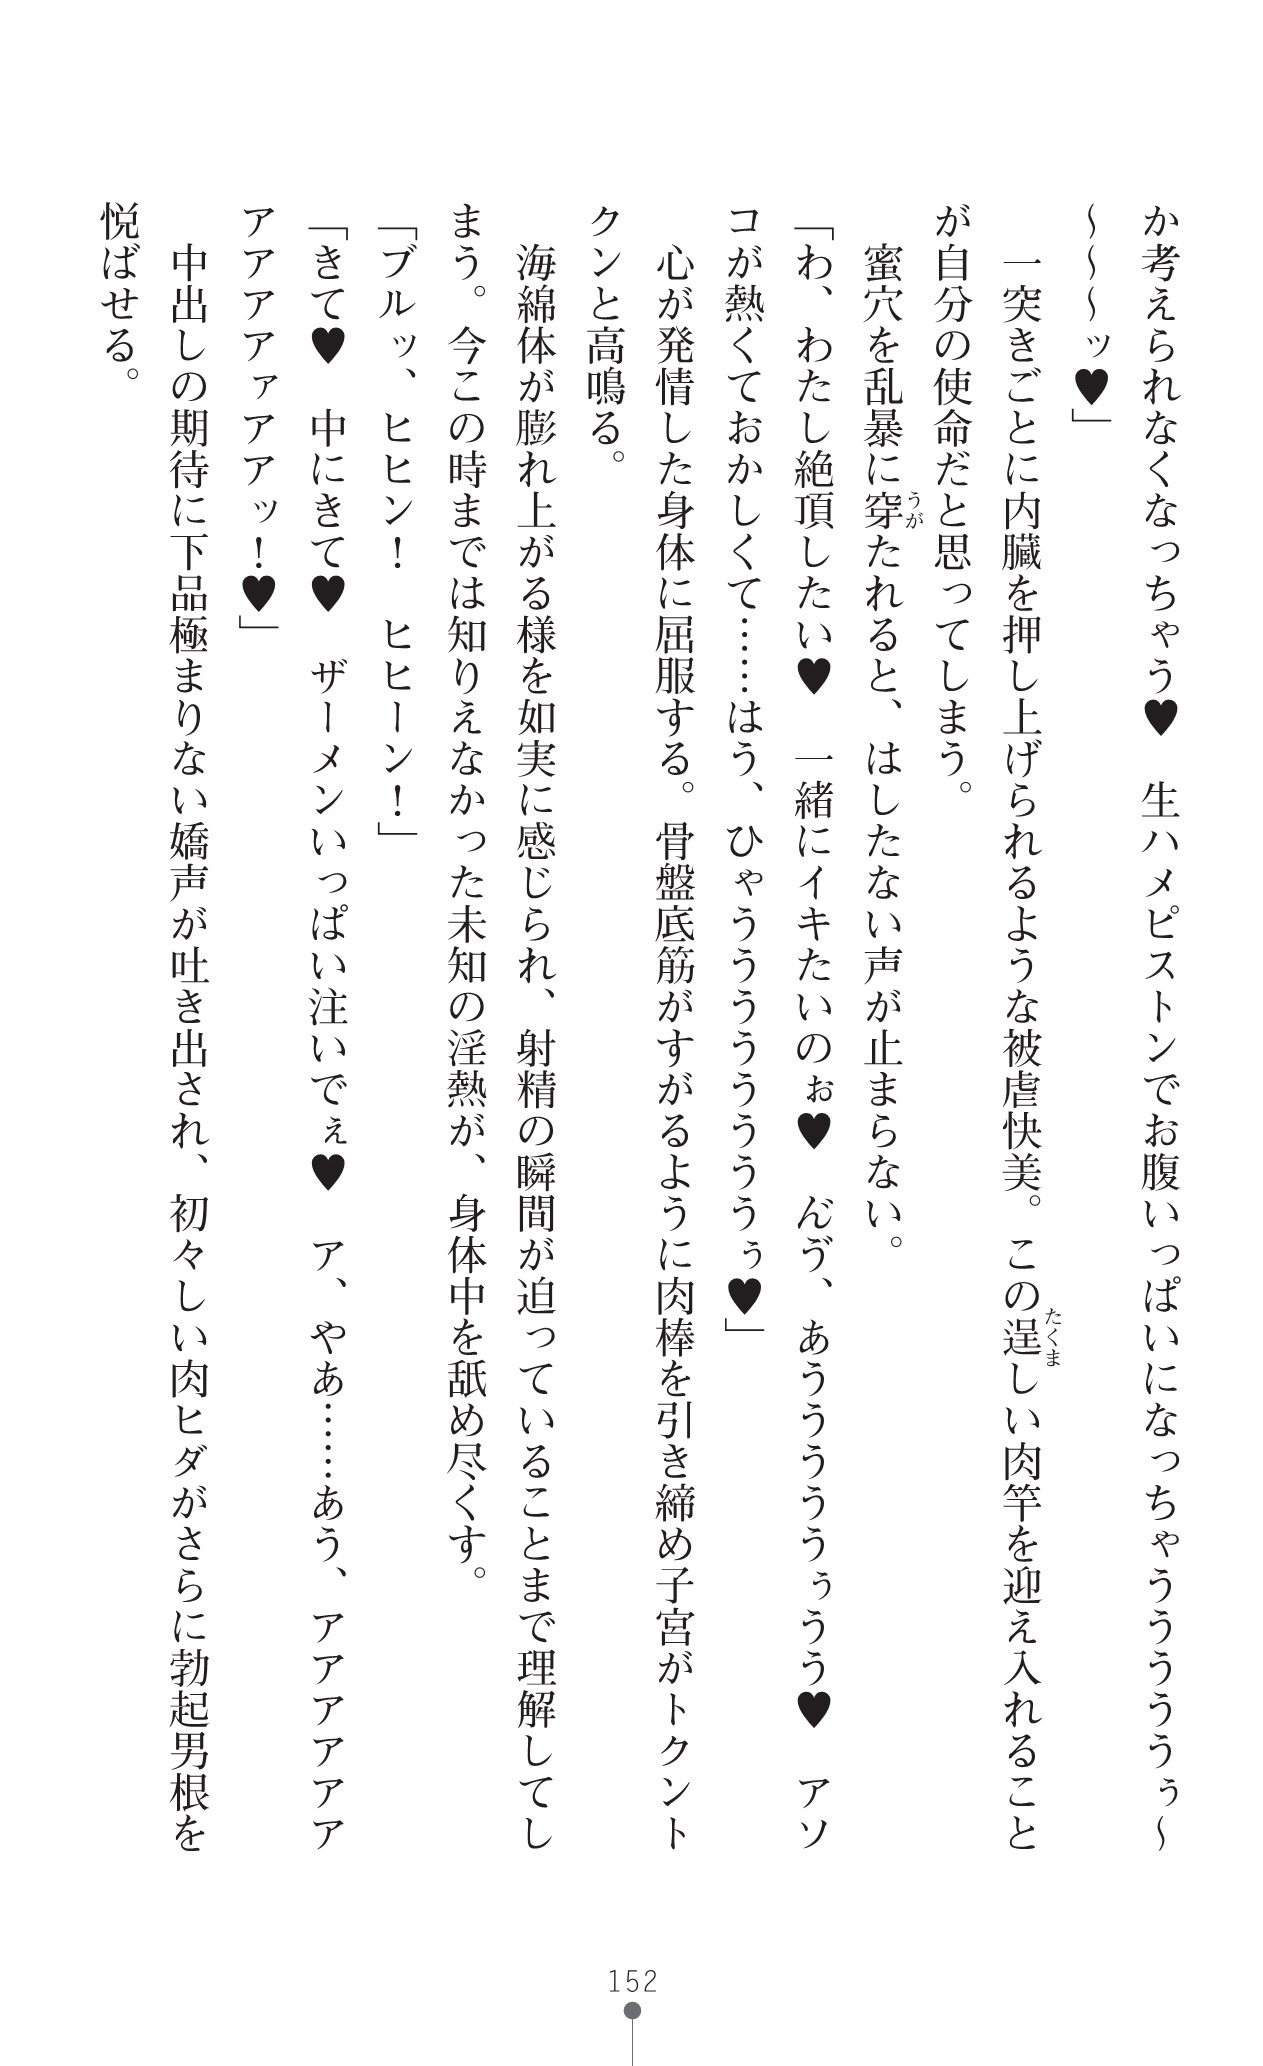 か考えられなくなっちゃう♥　生ハメピストンでお腹いっぱいになっちゃうううううぅ～
～～～ッ♥」
　一突きごとに内臓を押し上げられるような被虐快美。この逞しい肉竿を迎え入れること
が自分の使命だと思ってしまう。
　蜜穴を乱暴に穿たれると、はしたない声が止まらない。
「わ、わたし絶頂したい♥　一緒にイキたいのぉ♥　んゔ、あううううううぅうう♥　アソ
コが熱くておかしくて……はう、ひゃううううううううぅ♥」
　心が発情した身体に屈服する。骨盤底筋がすがるように肉棒を引き締め子宮がトクント
クンと高鳴る。
　海綿体が膨れ上がる様を如実に感じられ、射精の瞬間が迫っていることまで理解してし
まう。今この時までは知りえなかった未知の淫熱が、身体中を舐め尽くす。
「ブルッ、ヒヒン！　ヒヒーン！」
「きて♥　中にきて♥　ザーメンいっぱい注いでぇ♥　ア、やあ……あう、アアアアアア
アアアアァアアッ！♥」
　中出しの期待に下品極まりない嬌声が吐き出され、初々しい肉ヒダがさらに勃起男根を
悦ばせる。
たくま
うが
152